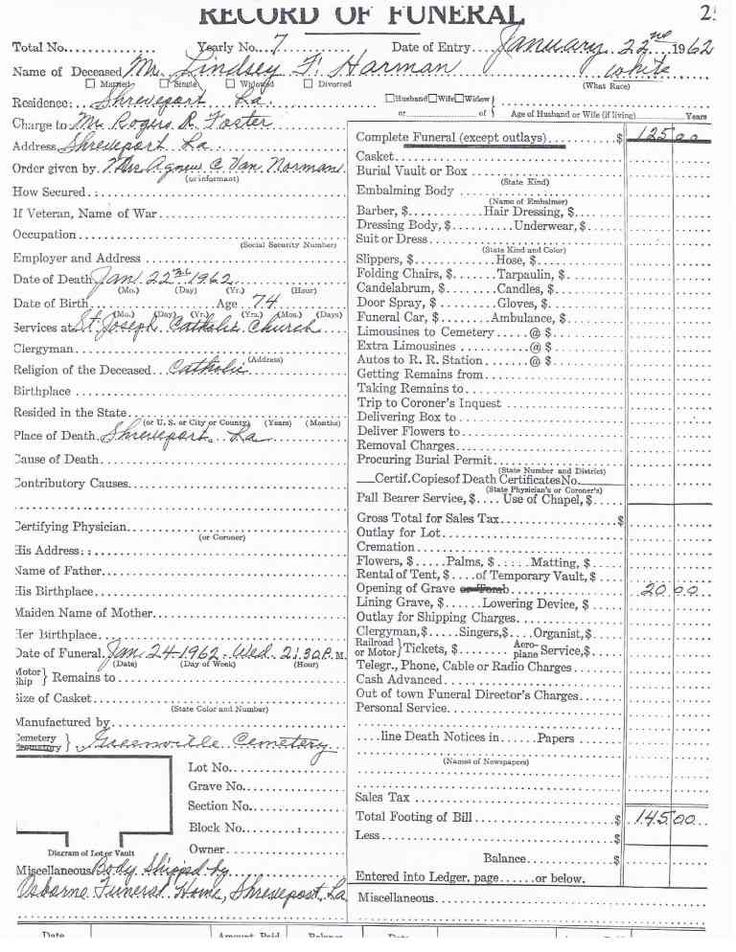 RECORD OF FUNERAL
Total No. Yearly No. 7 Date of Entry January 22nd 1962
Name of Deceased Mr. Lindsey F. Harman white
Married Single Widowed Divorced (What Race)
Residence: Shreveport La. Husband Wife Widow
or of Age of Husband or Wife (if living) Years
Charge to Mr. Rogers R. Foster
Address Shreveport La
Order given by Mrs Agnew C. Van Norman
(or informant)
How Secured
If Veteran, Name of War
Occupation
(Social Security Number)
Employer and Address
Date of Death Jan 22nd 1962
(Mo.) (Day) (Yr.) (Hour)
Date of Birth Age 74
(Mo.) (Day) (Yr.) (Yrs.) (Mos.) (Days)
Services at St. Joseph Catholic Church
Clergyman
(Address)
Religion of the Deceased Catholic
Birthplace
Resided in the State
(or U. S. or City or County) (Years) (Months)
Place of Death Shreveport, La
Cause of Death
Contributory Causes
Certifying Physician
(or Coroner)
His Address
Name of Father
His Birthplace
Maiden Name of Mother
Her Birthplace
Date of Funeral Jan. 24-1962 - Wed. 2:30 P.M.
(Date) (Day of Week) (Hour)
Motor Ship } Remains to
Size of Casket
(State Color and Number)
Manufactured by
Cemetery } Greenville Cemetery
Lot No.
Grave No.
Section No.
Block No.
Owner
Diagram of Lot or Vault
Miscellaneous Body Shipped by
Osborne Funeral Home, Shreveport, La
Complete Funeral (except outlays) $ 125 00
Casket
Burial Vault or Box
(State Kind)
Embalming Body
(Name of Embalmer)
Barber, $ Hair Dressing, $
Dressing Body, $ Underwear, $
Suit or Dress
(State Kind and Color)
Slippers, $ Hose, $
Folding Chairs, $ Tarpaulin, $
Candelabrum, $ Candles, $
Door Spray, $ Gloves, $
Funeral Car, $ Ambulance, $
Limousines to Cemetery @ $
Extra Limousines @ $
Autos to R. R. Station @ $
Getting Remains from
Taking Remains to
Trip to Coroner's Inquest
Delivering Box to
Deliver Flowers to
Removal Charges
Procuring Burial Permit
(State Number and District)
Certif. Copies of Death Certificates No.
(State Physician's or Coroner's)
Pall Bearer Service, $ Use of Chapel, $
Gross Total for Sales Tax $
Outlay for Lot
Cremation
Flowers, $ Palms, $ Matting, $
Rental of Tent, $ of Temporary Vault, $
Opening of Grave or Tomb 20 00
Lining Grave, $ Lowering Device, $
Outlay for Shipping Charges
Clergyman, $ Singers, $ Organist, $
Railroad or Motor } Tickets, $ Aeroplane Service, $
Telegr., Phone, Cable or Radio Charges
Cash Advanced
Out of town Funeral Director's Charges
Personal Service
line Death Notices in Papers
(Names of Newspapers)
Sales Tax
Total Footing of Bill $ 145 00
Less $
Balance $
Entered into Ledger, page or below.
Miscellaneous
Date Amount Paid Balance Date